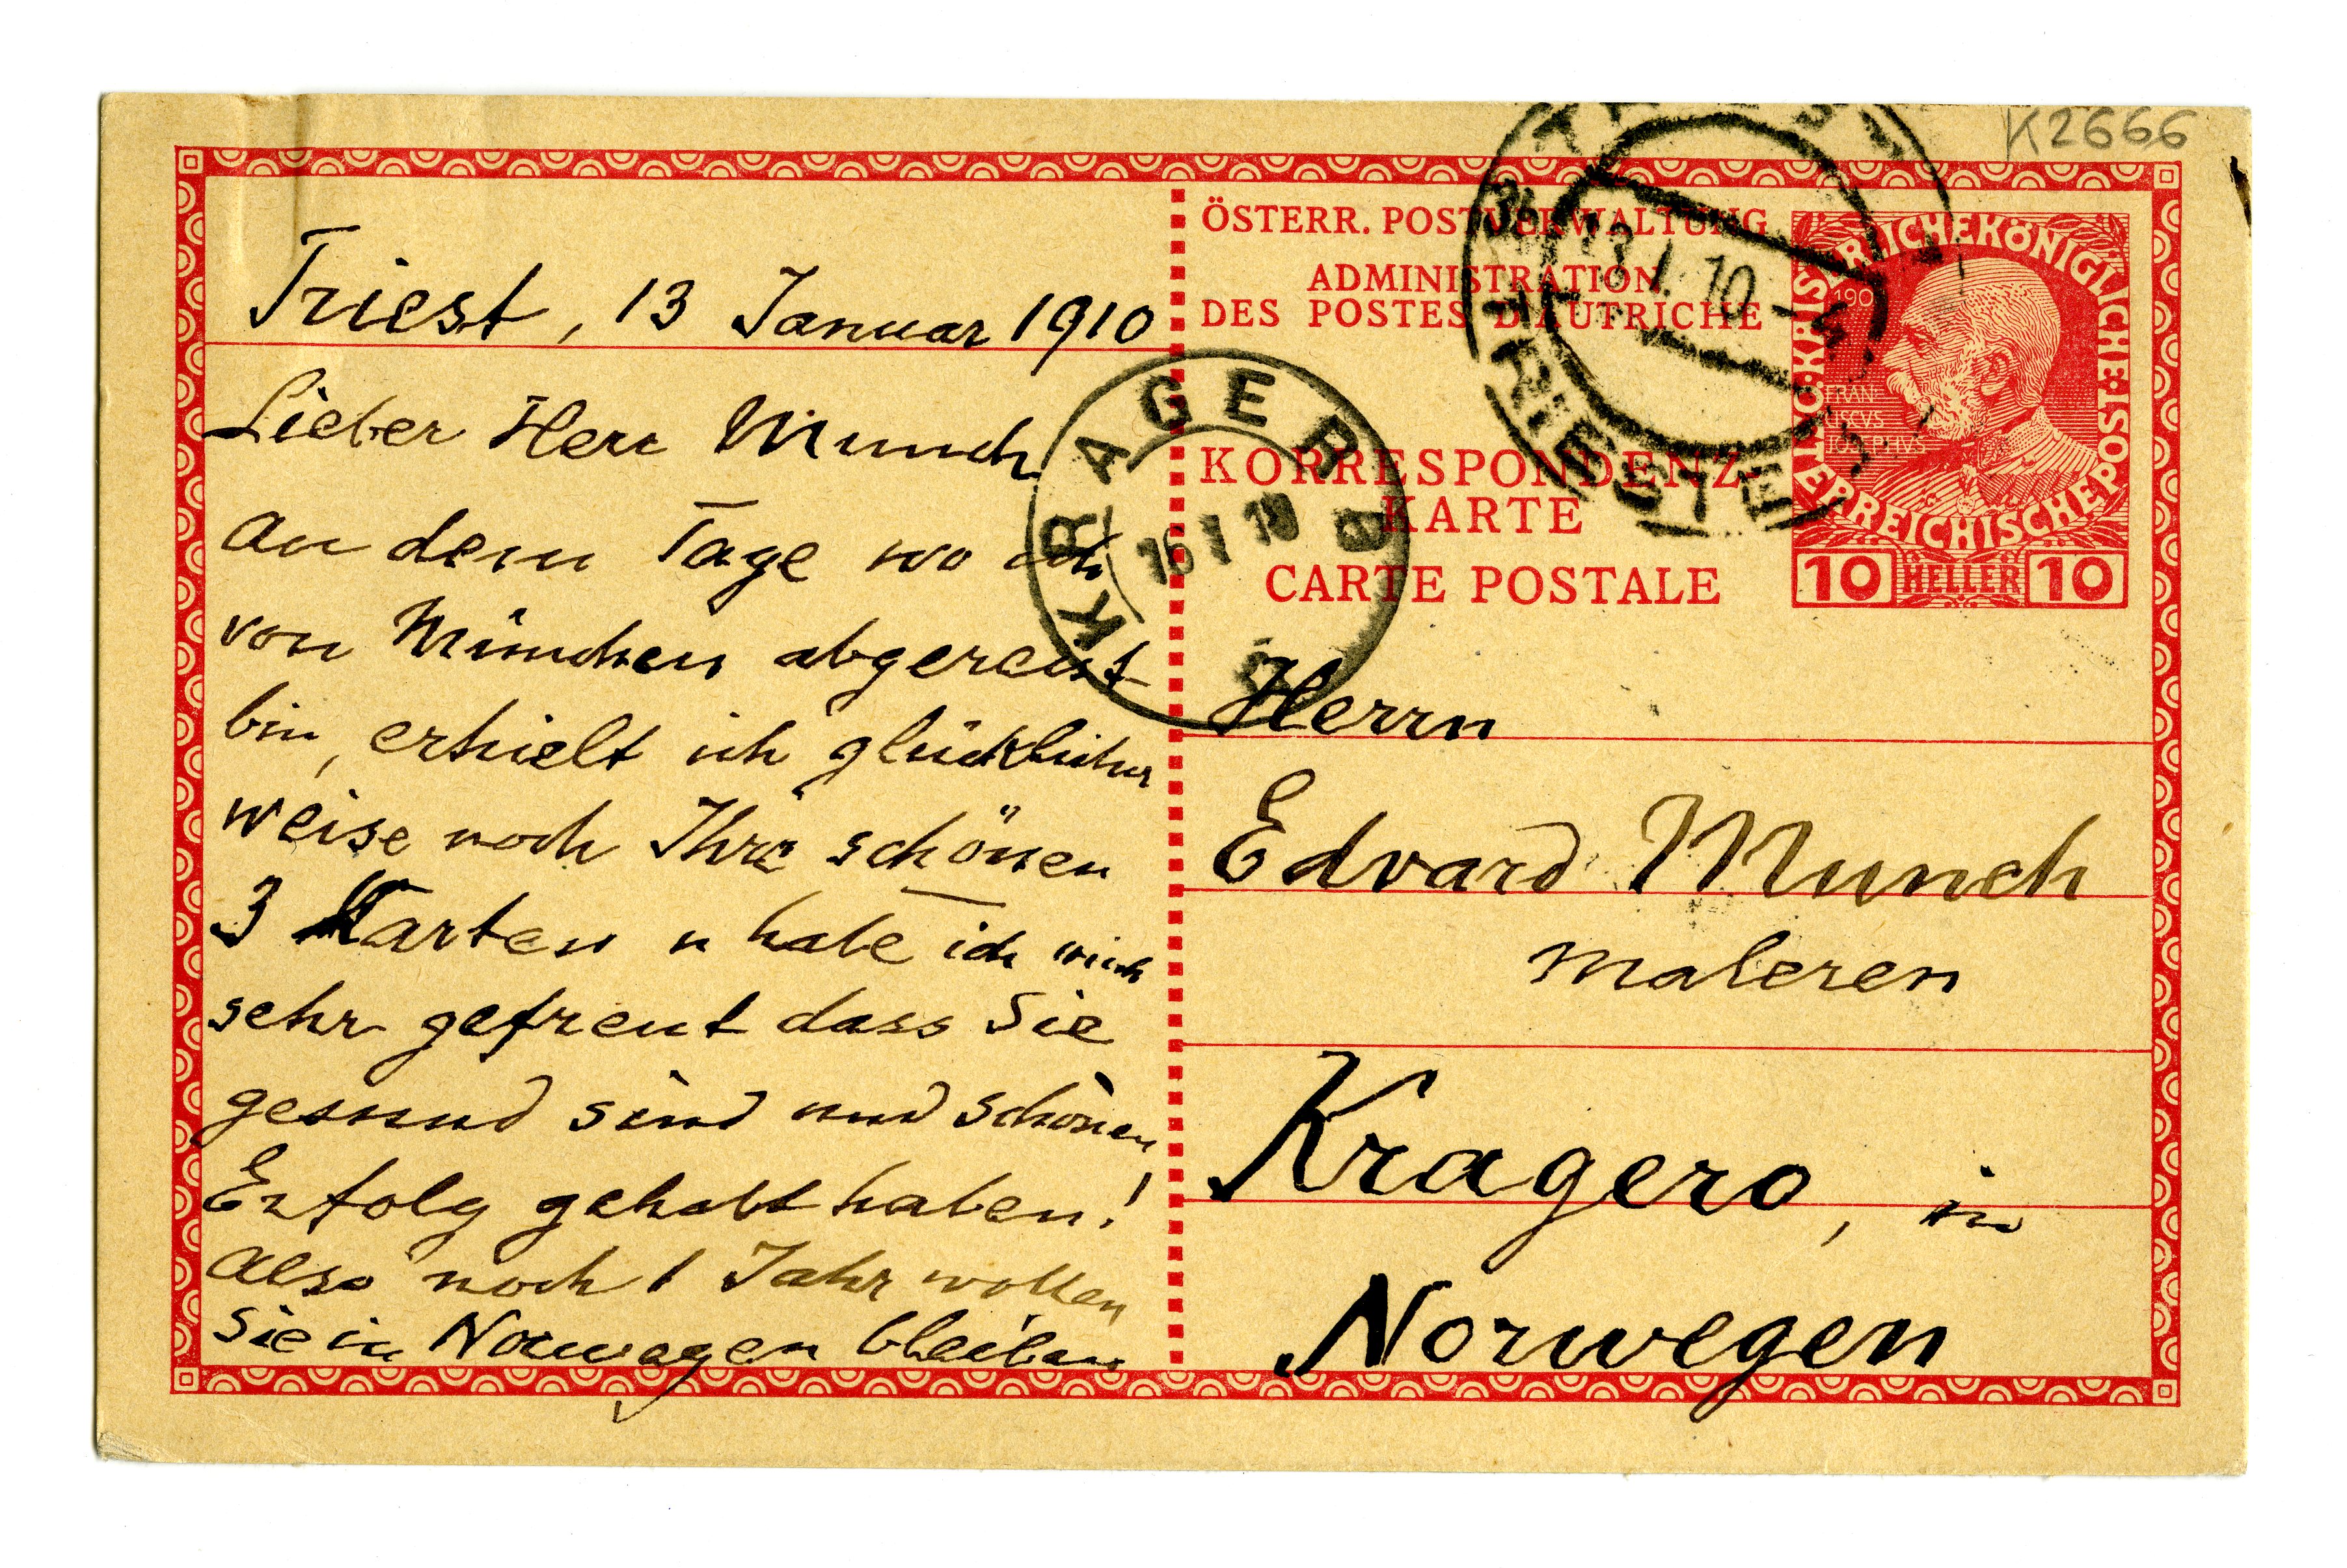 K2666
Triest, 13 Januar 1910
Lieber Herr Munch
An dem Tage wo ich
von München abgereist
bin, erhielt ich glücklicher
weise noch Ihre schönen
3 Karten u habe ich mich
sehr gefreut dass Sie
gesund sind und schönen
Erfolg gehabt haben!
Also noch 1 Jahr wollen
Sie in Norwegen bleiben
ÖSTERR. POSTVERWALTUNG
ADMINISTRATION
DES POSTES D'AUTRICHE
KORRESPONDENZ-
KARTE
CARTE POSTALE
KAISERLICHEKÖNIGLICHE
ÖSTERREICHISCHE POST
190
FRAN
ISCVS
IOSEPHVS
10 HELLER 10
TRIEST
13.I.10
TRIESTE
KRAGERØ
16 I 10
Herrn
Edvard Munch
maleren
Kragero, in
Norwegen